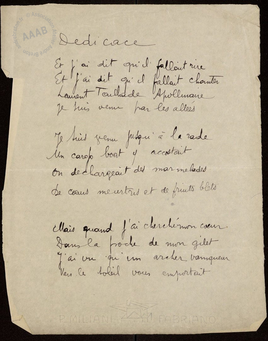 AAAB
Dédicace
Et j'ai dit qu'il fallait rire
Et j'ai dit qu'il fallait chanter
Laurent Tailhade Apollinaire
Je suis venu par les allées
Je suis venu jusqu'à la rade
Un cargo boat y accostant
On déchargeait des marmelades
De cœurs meurtris et de fruits blets
Mais quand j'ai cherché mon cœur
Dans la poche de mon gilet
J'ai vu qu'un archer vainqueur
Vers le soleil vous emportait